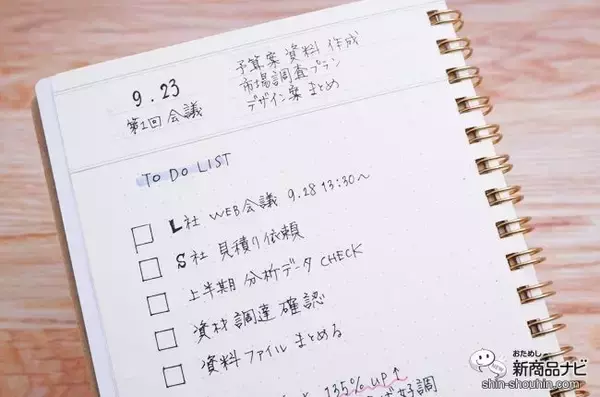 9.23
第1回会議
予算案資料作成
市場調査プラン
デザイン案まとめ
TO DO LIST
L社 WEB会議 9.28 13:30〜
S社 見積り依頼
上半期 分析データ CHECK
資材調達確認
資料ファイルまとめる
135% UP↑
好調
おためし
新商品ナビ
shin-shouhin.com